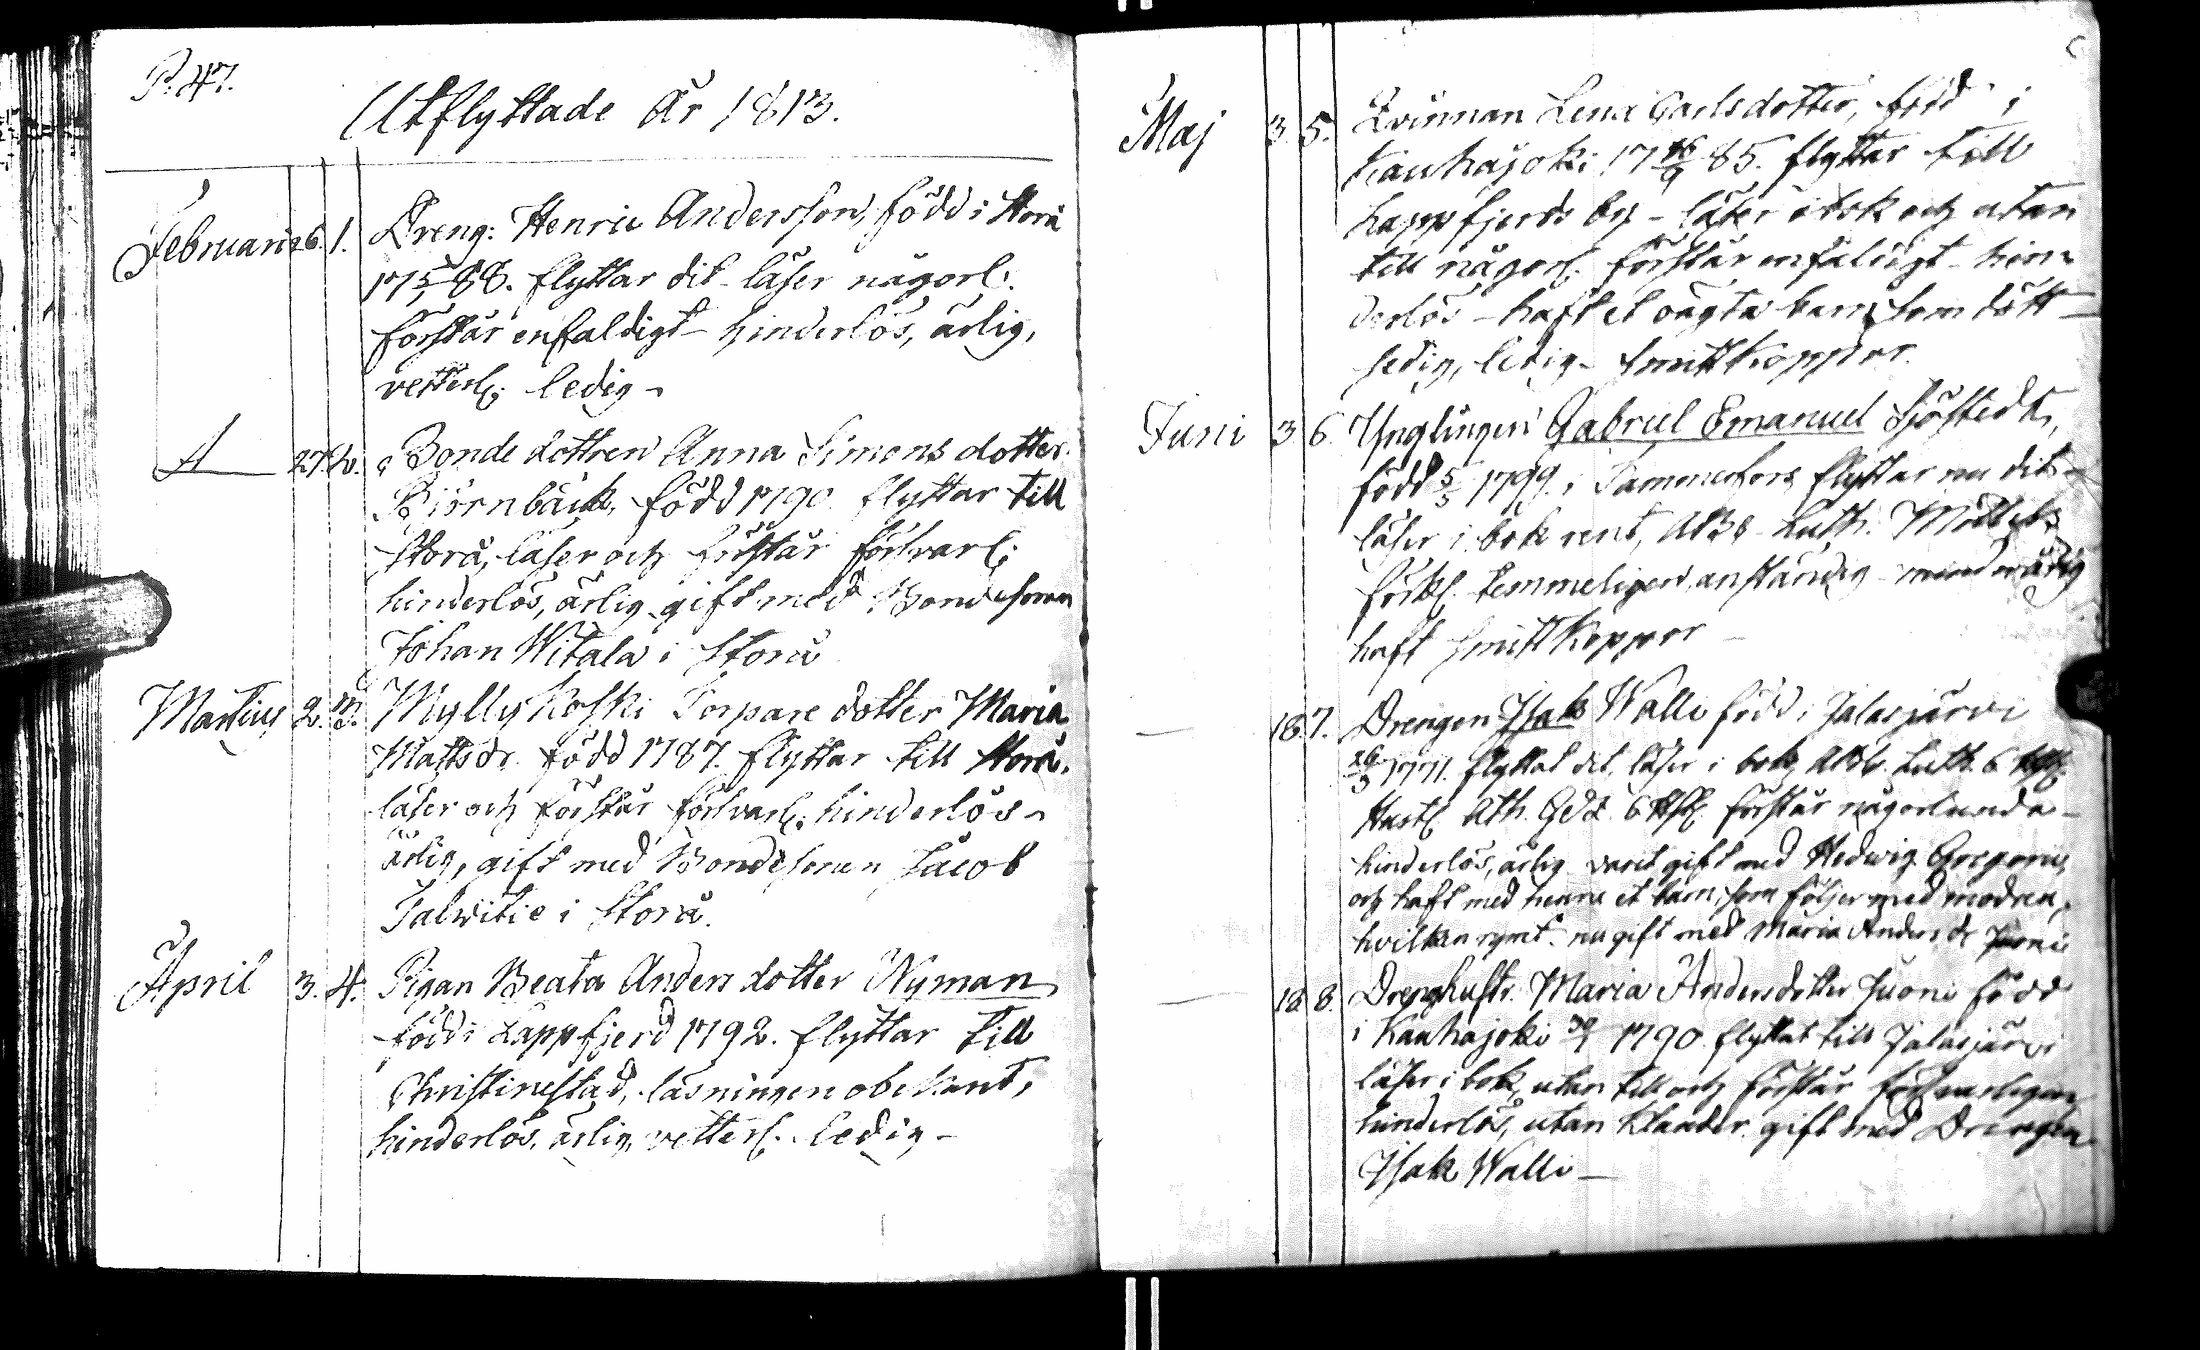 P. 47.
Utflyttade År 1813.
Februarii 26. 1. Dreng: Henric Andersson, född i Storå
17 5/1 88. flyttar dit - läser någorl:
förstår enfaldigt - hinderlös, ärlig,
vetterl: ledig -
27. 2. Bondedottren Anna Simonsdotter
Björnbäck, född 1790. flyttar till
Storå, läser och förstår försvarl:
hinderlös, ärlig gift med Bondesonen
Johan Witala i Storå
Martius 2. 3. Myllykoski Torparedotter Maria
Mattsdr född 1787. flyttar till Storå.
läser och förstår försvarl: hinderlös -
ärlig, gift med Bondesonen Jacob
Talwitie i Storå.
April 3. 4. Pigan Beata Andersdotter Nyman
född i Lappfjerd 1792. flyttar till
Christinestad, läsningen obekant,
hinderlös, ärlig, vetterl. ledig -
Maj 3 5. Qvinnan Lena Carlsdotter, född i
Kauhajoki 17 16/9 85. flyttar till
Lappfjerds by - läser i bok och utan
till någorl: förstår enfaldigt - hin-
derlös - haft et oägta barn som dött -
sedig, ledig - haft Koppor.
Juni 3 6. Ynglingen Gabriel Emanuel Sjöstedt,
född 5/5 1799, i Tammerfors flyttar nu dit -
läser i bok rent, Ab - Luth.
förkl. temmeligen, anständig - minderårig
haft Smittkoppor -
— 18. 7. Drengen Isak Walli född i Jalasjärvi
26/3 1771. flyttat dit, läser i bok, Luth. 6
Hustl. Ath. 6 förstår någorlunda -
hinderlös, ärlig varit gift med Hedwig
och haft med henne et barn, som följer med modren,
hvilken rymt. nu gift med Maria Andersdr Juoni
— 18 8. Drenghustr. Maria Andersdotter Juoni född
i Kauhajoki 1790 flyttat till Jalasjärvi
läser i bok, utan till och förstår försvarligen
hinderlös, utan klander. gift med Drengen
Isak Walli -